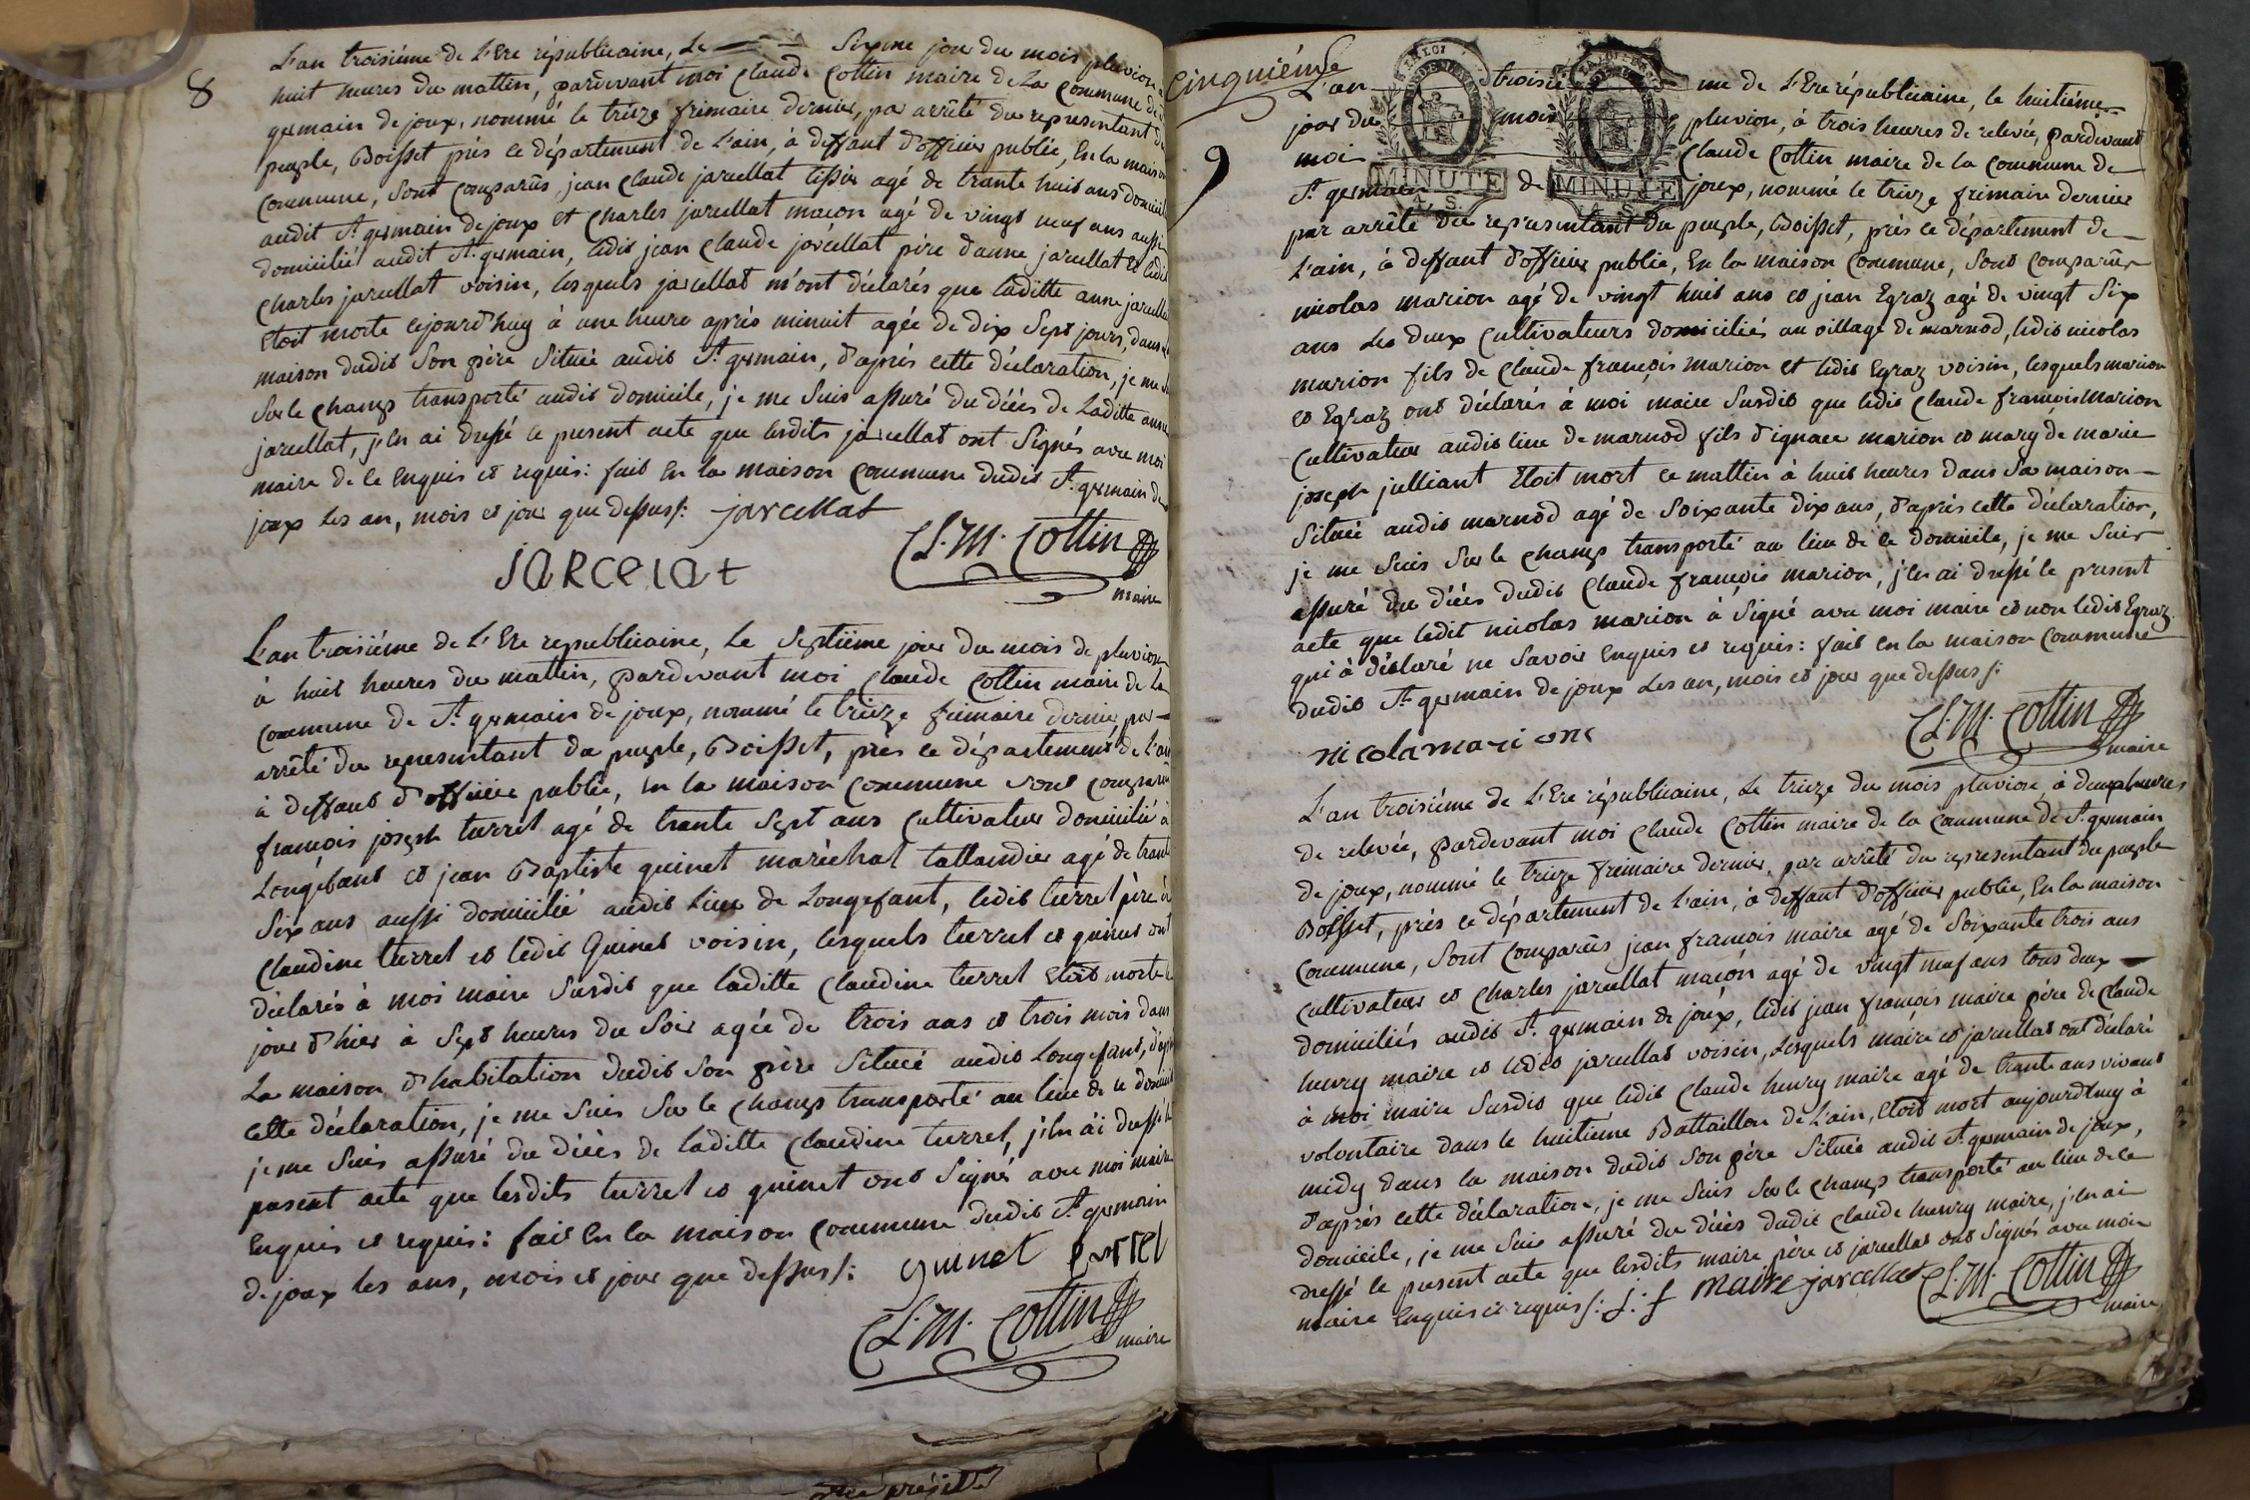 8
L'an troisiéme de L'Ere républicaine, Le sixme jour du mois pluviose
huit heures du mattin, pardevant moi Claude Cottin maire de La Commune de St
germain de joux, nommé le treize frimaire dernier, par arrêté du representant du
peuple, Boisset près le département de L'ain, à deffaut d'officier public, En la maison
Commune, Sont Comparûs, jean Claude jarcellat tissier agé de trante huit ans domicilié
audit St. germain de joux et Charles jarcellat maçon agé de vingt neuf ans aussi
domicilié audit St. germain, ledit jean Claude jarcellat père d'anne jarcellat et ledit
Charles jarcellat voisin, lesquels jarcellat m'ont déclarés que laditte anne jarcellat
Etoit morte cejourd'huy à une heure après minuit agée de dix Sept jours, dans la
maison dudit Son père Située audit St. germain, d'après cette déclaration, je me suis
Sur le Champ transporté audit domicile, je me Suis assuré du décés de Laditte anne
jarcellat, j'En ai dressé le present acte que lesdits jarcellat ont Signés avec moi
maire de ce Enquis et requis: fait En la maison Commune dudit St. germain de
joux Les an, mois et jour que dessus/: jarcellat
jaRcelat Cl. M. Cottin
maire
L'an troisiéme de L'Ere republicaine, Le Septiéme jour du mois de pluviose
à huit heures du mattin, pardevant moi Claude Cottin maire de La
Commune de St. germain de joux, nommé le treize frimaire dernier, par
arrêté du representant du peuple, Boisset, près le département de L'ain
à deffaut d'officier public, En la maison Commune Sont Comparûs
françois joseph turrel agé de trante Sept ans Cultivateur domicilié à
Longefant et jean Baptiste quinet maréchal tallandier agé de trante
Six ans aussi domicilié audit Lieu de Longefant, ledit turrel père à
Claudine turrel et ledit Quinet voisin, lesquels turrel et quinet ont
déclarés à moi maire Susdit que laditte Claudine turrel Etoit morte le
jour d'hier à Sept heures du Soir agée de trois ans et trois mois dans
La maison d'habitation dudit Son père Située audit Longefant, d'après
cette déclaration, je me Suis Sur le Champ transporté au lieu de ce domicile
je me Suis assuré du décès de laditte Claudine turrel, j'En ai dressé le
present acte que lesdits turrel et quinet ont Signés avec moi maire
Enquis et requis: fait En la maison Commune dudit St. germain
de joux les ans, mois et jour que dessus/: quinet turrel
Cl. M. Cottin
maire
Cinquiéme
9
L'an troisiéme de L'Ere républicaine, le huitiéme
jour du mois pluviose, à trois heures de relevée, pardevant
moi Claude Cottin maire de la Commune de
St. germain de joux, nommé le treize frimaire dernier
MINUTE
MINUTE
par arrêté du representant du peuple, Boisset, près le département de
L'ain, à deffaut d'officier public, En la maison Commune, Sont Comparûs
nicolas marion agé de vingt huit ans et jean Egraz agé de vingt Six
ans Les deux Cultivateurs domiciliés au village de marnod, ledit nicolas
marion fils de Claude françois marion et ledit Egraz voisin, lesquels marion
et Egraz ont déclarés à moi maire Susdit que ledit Claude françois marion
Cultivateur audit lieu de marnod fils d'ignace marion et mary de marie
joseph julliant Etoit mort ce mattin à huit heures dans Sa maison
Située audit marnod agé de Soixante dix ans, d'après cette déclaration,
je me Suis Sur le Champ transporté au lieu de ce domicile, je me Suis
assuré du décés dudit Claude françois marion, j'En ai dressé le present
acte que ledit nicolas marion à Signé avec moi maire et non ledit Egraz
qui à déclaré ne Savoir Enquis et requis: fait En la maison Commune
dudit St. germain de joux Les an, mois et jour que dessus/:
nicolamarione Cl. M. Cottin
maire
L'an troisiéme de L'Ere républicaine, Le treize du mois pluviose, à deux heures
de relevée, pardevant moi Claude Cottin maire de la Commune de St. germain
de joux, nommé le treize frimaire dernier, par arrêté du representant du peuple
Boisset, près le département de L'ain, à deffaut d'officier public, En la maison
Commune, Sont Comparûs jean françois maire agé de Soixante trois ans
Cultivateur et Charles jarcellat maçon agé de vingt neuf ans tous deux
domiciliés audit St. germain de joux, ledit jean françois maire père de Claude
henry maire et ledit jarcellat voisin, Lesquels maire et jarcellat ont déclaré
à moi maire Susdit que ledit Claude henry maire agé de trante ans vivant
volontaire dans le huitiéme Battaillon de L'ain, Etoit mort aujourd'huy à
midy dans la maison dudit Son père Située audit St. germain de joux,
d'après cette déclaration, je me Suis Sur le Champ transporté au lieu de ce
domicile, je me Suis assuré du décès dudit Claude henry maire, j'En ai
dressé le present acte que lesdits maire père et jarcellat ont Signés avec moi
maire Enquis et requis/: j: f maire jarcellat Cl. M. Cottin
maire